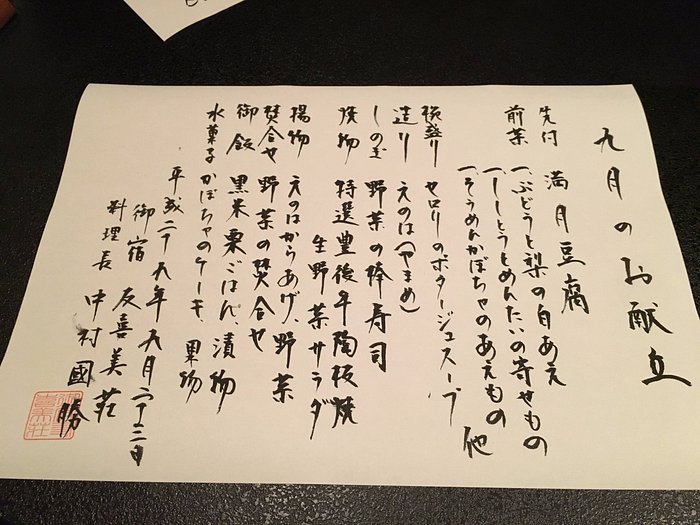 九月のお献立
先付 満月豆腐
前菜 一、ぶどうと梨の白あえ
一、ししとうとめんたいの寄せもの
一、そうめんかぼちゃのあえもの 他
椀盛り セロリのポタージュスープ
造り えのは(やまめ)
しのぎ 野菜の棒寿司
焼物 特選豊後牛陶板焼
生野菜サラダ
揚物 えのはからあげ、野菜
焚合せ 野菜の焚合せ
御飯 黒米栗ごはん、漬物
水菓子 かぼちゃのケーキ、果物
平成二十九年九月二十三日
御宿 友喜美荘
料理長 中村國勝